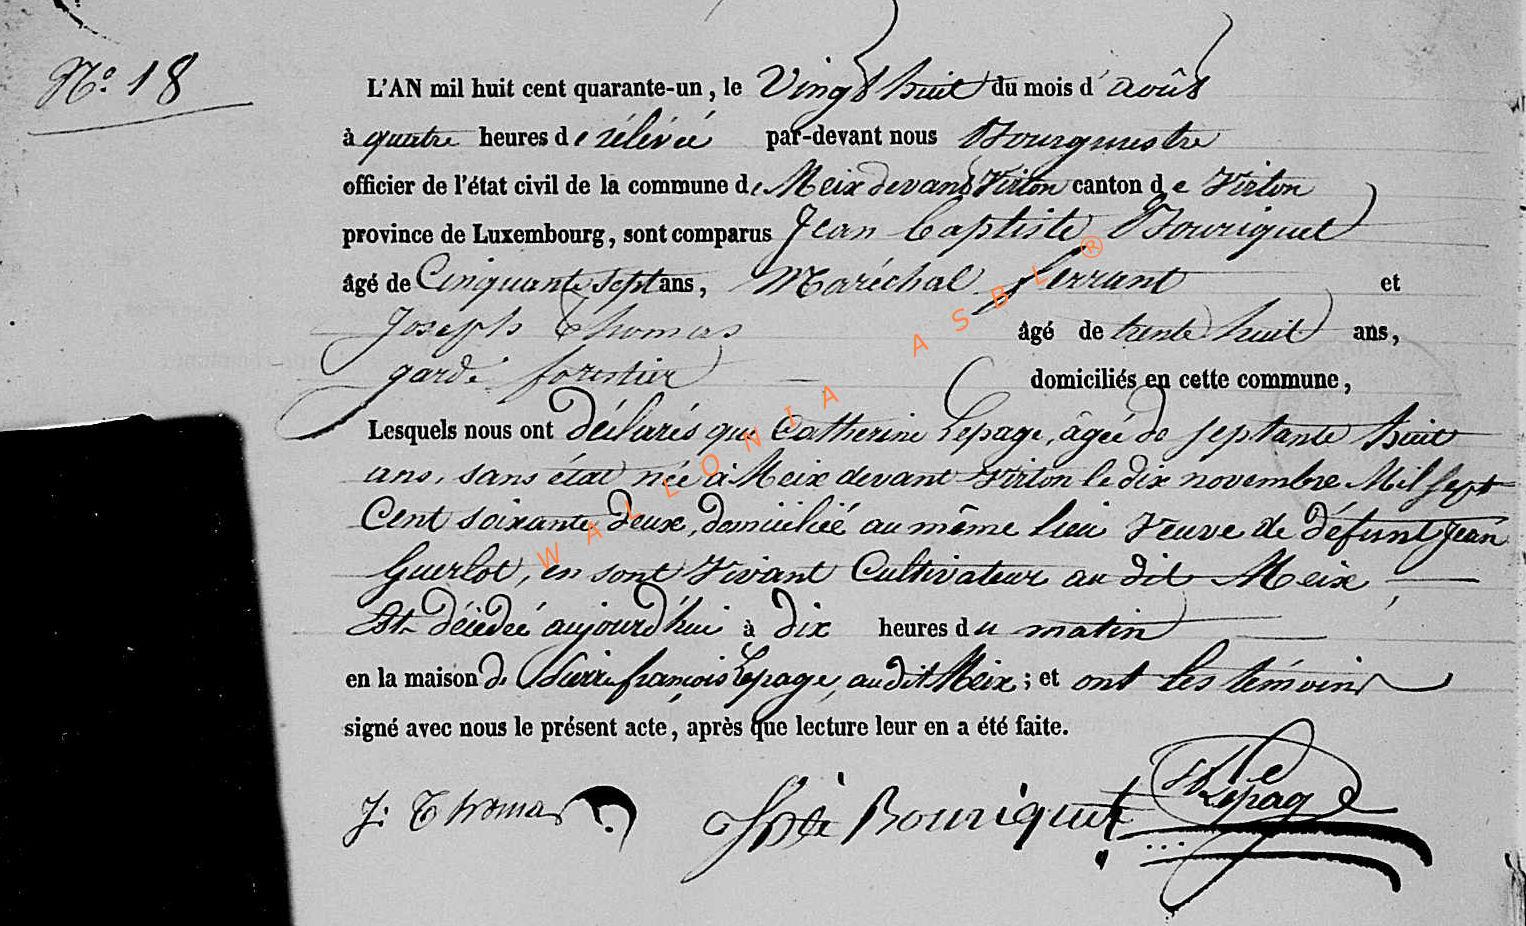 N.º 18
L'AN mil huit cent quarante-un, le Vingt huit du mois d'août
à quatre heures de rélévée par-devant nous Bourgmestre
officier de l'état civil de la commune de Meix devant Virton canton de Virton
province de Luxembourg, sont comparus Jean Baptiste Bouriquet
âgé de Cinquante sept ans, Maréchal ferrant et
Joseph Thomas âgé de trente huit ans,
garde forestier domiciliés en cette commune,
Lesquels nous ont déclarés que Catherine Lepage, âgée de septante huit
ans, sans état née à Meix devant Virton le dix novembre Mil sept
Cent soixante deux, domiciliée au même lieu Veuve de défunt Jean
Guerlot, en sont Vivant Cultivateur au dit Meix
Est décédée aujourd'hui à dix heures du matin
en la maison de Pierre françois Lepage, au dit Meix; et ont les témoins
signé avec nous le présent acte, après que lecture leur en a été faite.
J: Thomas JBte Bouriquet Lepage
WALLONIA ASBL ®